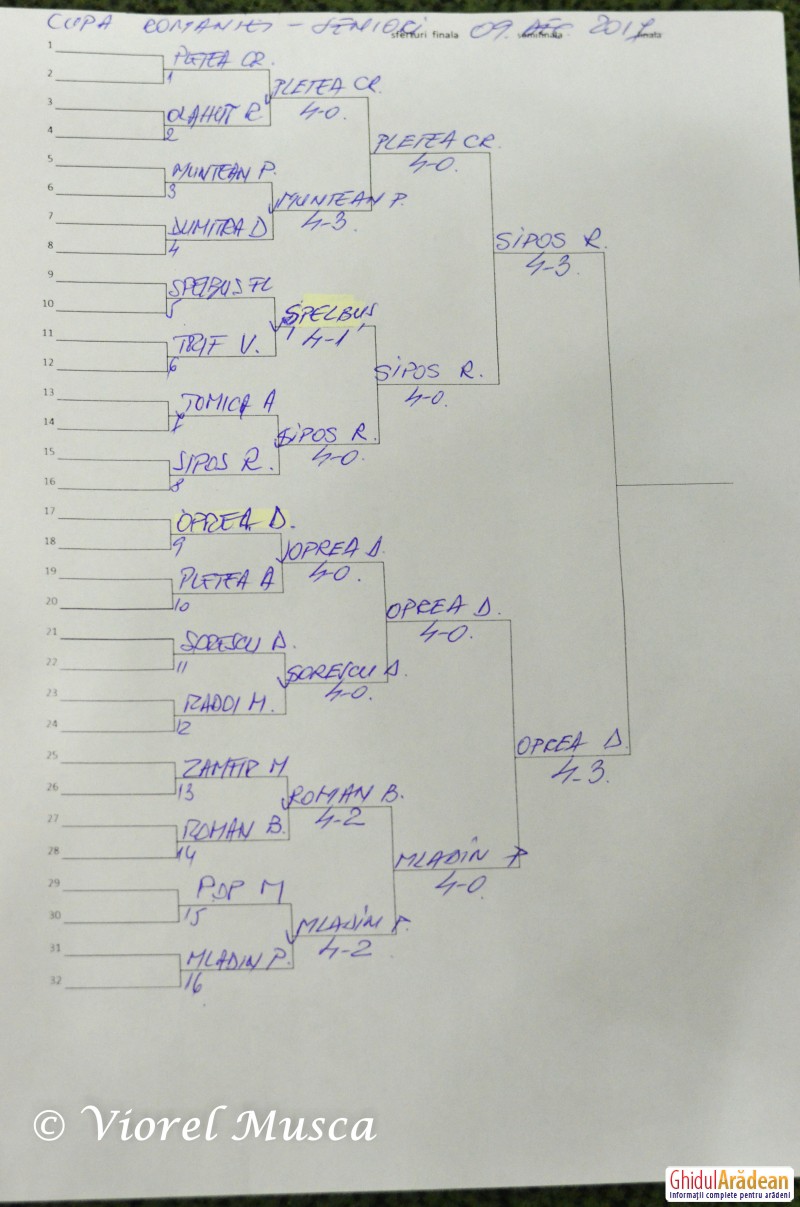 CUPA ROMANIEI - SENIORI 09. DEC 2017
sferturi finala semifinala finala
1
2
3
4
5
6
7
8
9
10
11
12
13
14
15
16
17
18
19
20
21
22
23
24
25
26
27
28
29
30
31
32
PLETEA CR.
1
OLAHUT R
2
MUNTEAN P.
3
DUMITRA D
4
SPELBUS FL
5
TRIF V.
6
TOMICA A
7
SIPOS R.
8
OPREA D.
9
PLETEA A
10
SORESCU D.
11
RADOI M.
12
ZAMFIR M
13
ROMAN B.
14
POP M
15
MLADIN P.
16
PLETEA CR.
4-0.
MUNTEAN P.
4-3.
SPELBUS
4-1
SIPOS R.
4-0.
OPREA D.
4-0.
SORESCU D.
4-0.
ROMAN B.
4-2
MLADIN P.
4-2
PLETEA CR.
4-0.
SIPOS R.
4-0.
OPREA D.
4-0.
MLADIN P
4-0
SIPOS R.
4-3.
OPREA D.
4-3.
© Viorel Musca
GhidulArădean
Informații complete pentru arădeni